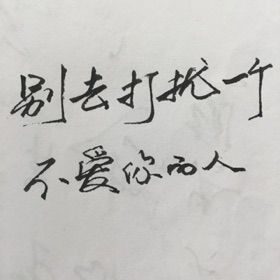 别去打扰一个
不爱你的人